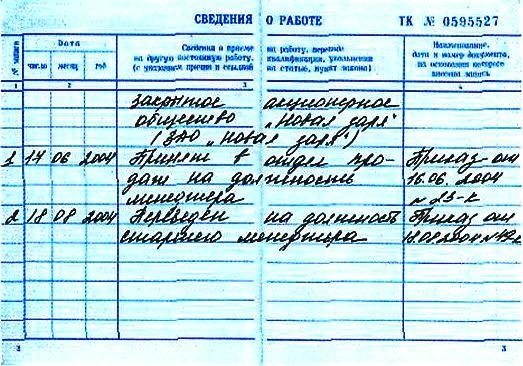 СВЕДЕНИЯ О РАБОТЕ ТК № 0595527
№ записи
Дата
число месяц год
Сведения о приеме на работу, переводе
на другую постоянную работу, квалификации, увольнении
(с указанием причин и ссылкой на статью, пункт закона)
Наименование,
дата и номер документа,
на основании которого
внесена запись
1 2 3 4
Закрытое акционерное
общество „Новая заря"
(ЗАО „Новая заря")
1 14 06 2004 Принят в отдел про- Приказ от
даж на должность 16.06.2004
менеджера №23-к
2 18 08 2004 Переведен на должность Приказ от
старшего менеджера 18.08.2004
2 3